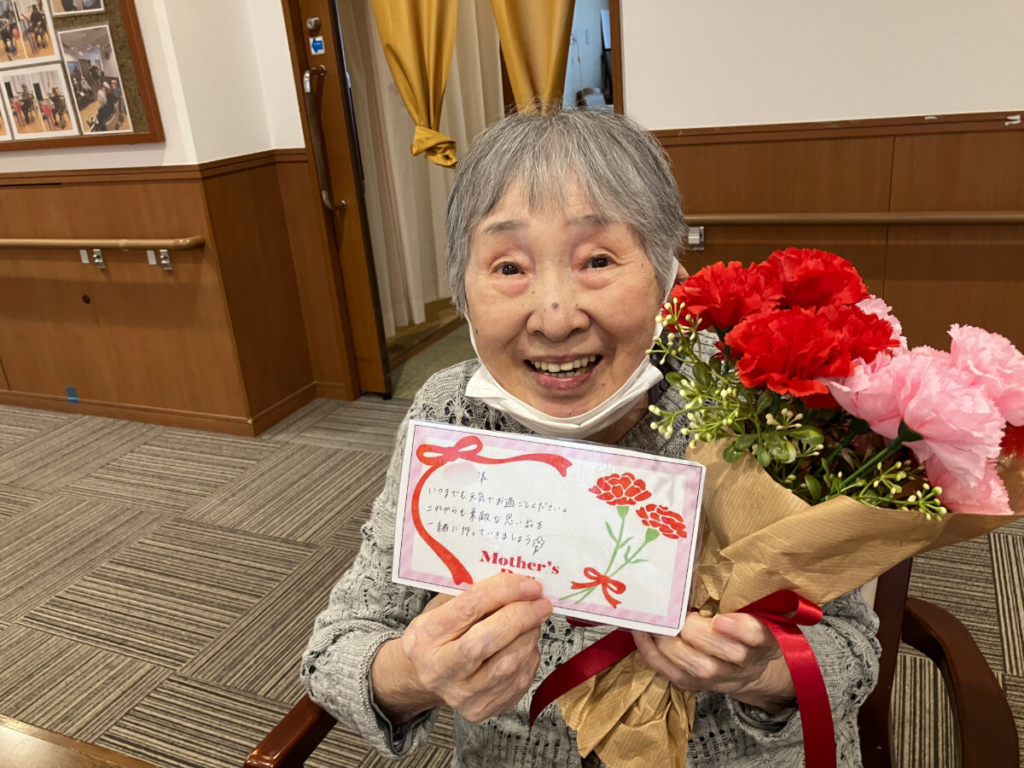 様
いつまでも元気でお過ごしください。
これからも素敵な思い出を
一緒に作っていきましょう
Mother's